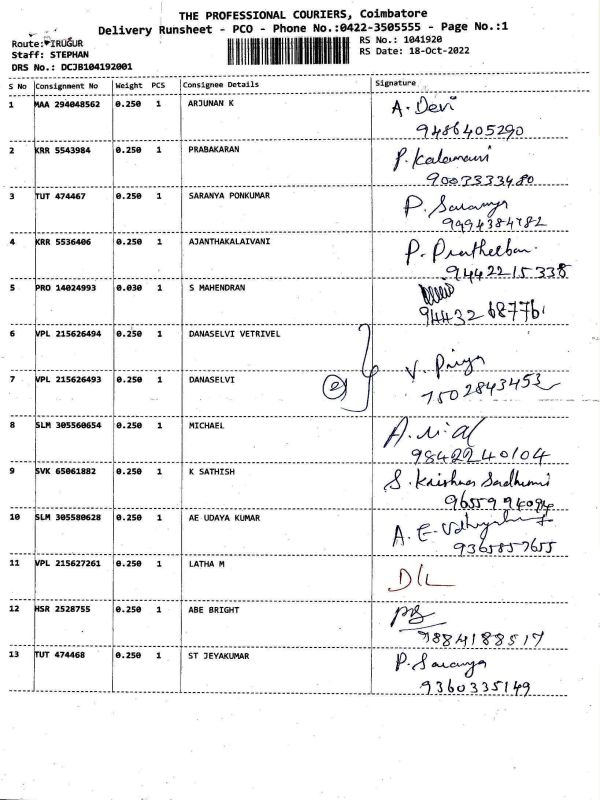 THE PROFESSIONAL COURIERS, Coimbatore
Delivery Runsheet - PCO - Phone No.:0422-3505555 - Page No.:1
Route: IRUGUR
RS No.: 1041920
Staff: STEPHAN
RS Date: 18-Oct-2022
DRS No.: DCJB104192001
S No Consignment No Weight PCS Consignee Details Signature
1 MAA 294048562 0.250 1 ARJUNAN K A. Devi
9486405290
2 KRR 5543984 0.250 1 PRABAKARAN P. Kalamani
9003333480
3 TUT 474467 0.250 1 SARANYA PONKUMAR P. Saranya
9994384782
4 KRR 5536406 0.250 1 AJANTHAKALAIVANI P. Prathelban.
9442215338
5 PRO 14024993 0.030 1 S MAHENDRAN
9443268776
6 VPL 215626494 0.250 1 DANASELVI VETRIVEL
V. Priya
7 VPL 215626493 0.250 1 DANASELVI 2
7502843453
8 SLM 305560654 0.250 1 MICHAEL
9842240104
9 SVK 65061882 0.250 1 K SATHISH S. Krishna
9655994094
10 SLM 305580628 0.250 1 AE UDAYA KUMAR A. E.
9365857655
11 VPL 215627261 0.250 1 LATHA M D/L
12 HSR 2528755 0.250 1 ABE BRIGHT
9884188517
13 TUT 474468 0.250 1 ST JEYAKUMAR P. Saranya
9360335149